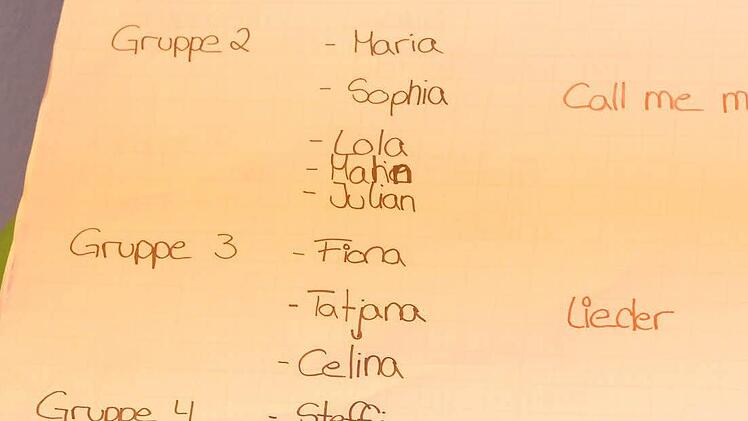 Gruppe 2 - Maria
- Sophia Call me m
- Lola
- Julian
Gruppe 3 - Fiona
- Tatjana Lieder
- Celina
Gruppe 4 - Steffi